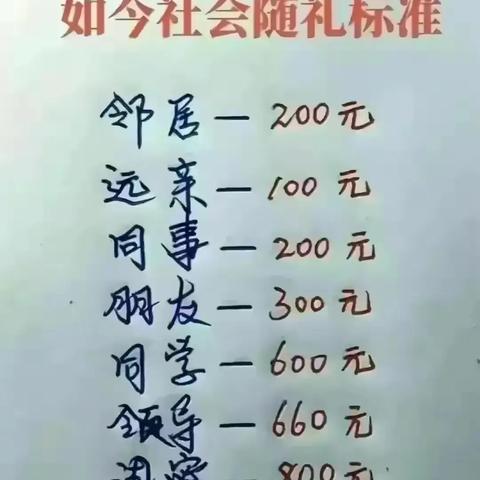 如今社会随礼标准
邻居—200元
远亲—100元
同事—200元
朋友—300元
同学—600元
领导—660元
闺蜜—800元